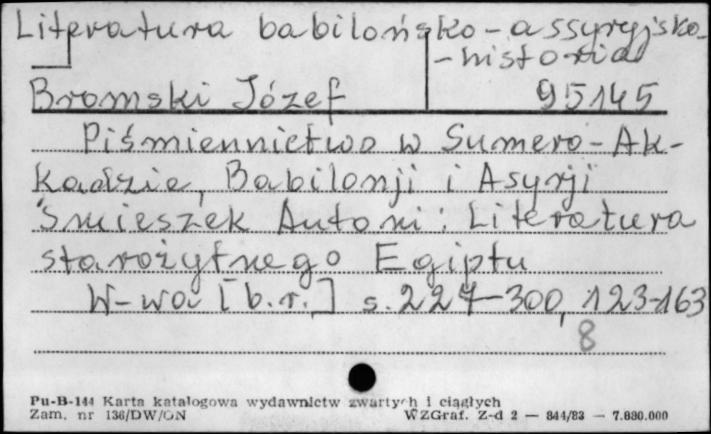 Literatura babilońsko-assyryjsko-
-historia
Bromski Józef 95145
Piśmiennictwo w Sumero-Ak-
kadzie, Babilonji i Asyrji
Śmieszek Antoni: Literatura
starożytnego Egiptu
W-wa [b.r.] s. 227-300, 123-163
8
Pu-B-144 Karta katalogowa wydawnictw zwartych i ciągłych
Zam. nr 136/DW/ON WZGraf. Z-d 2 — 844/83 — 7.880.000